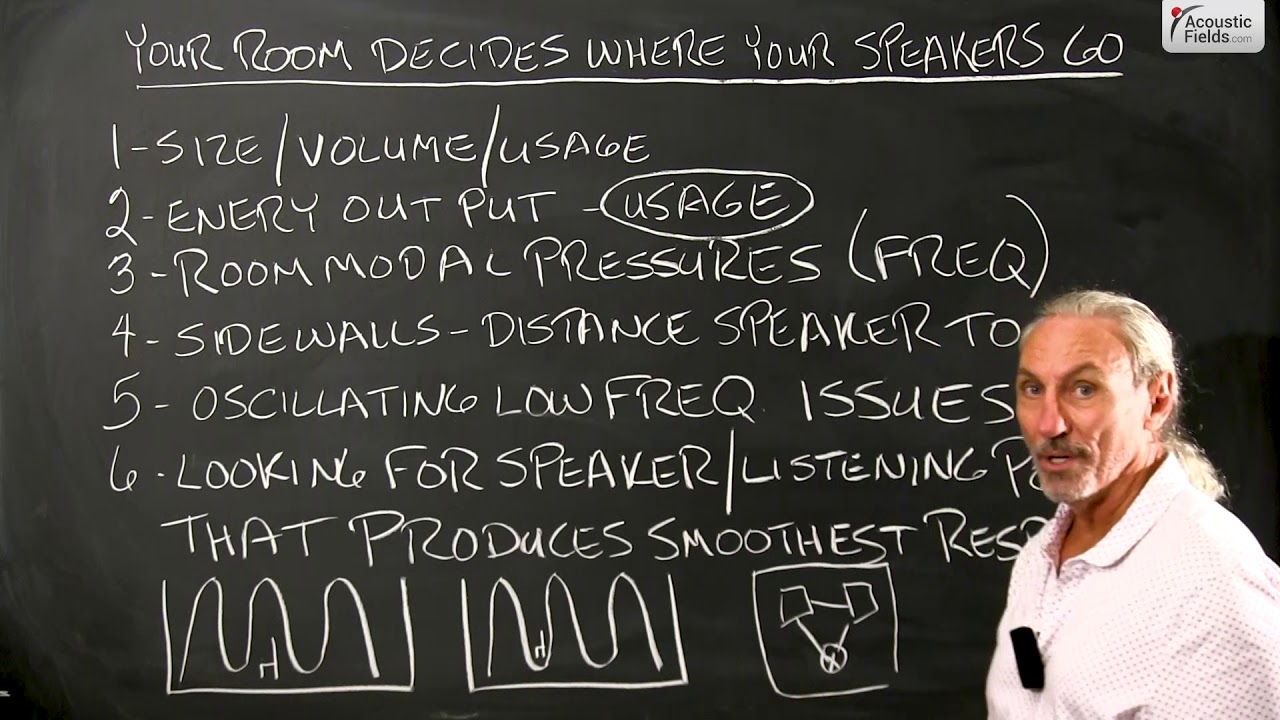 Acoustic
Fields.com
YOUR ROOM DECIDES WHERE YOUR SPEAKERS GO
1-SIZE/VOLUME/USAGE
2-ENERY OUT PUT - USAGE
3-ROOM MODAL PRESSURES (FREQ)
4-SIDEWALLS-DISTANCE SPEAKER TO
5-OSCILLATING LOW FREQ ISSUES
6-LOOKING FOR SPEAKER/LISTENING
THAT PRODUCES SMOOTHEST